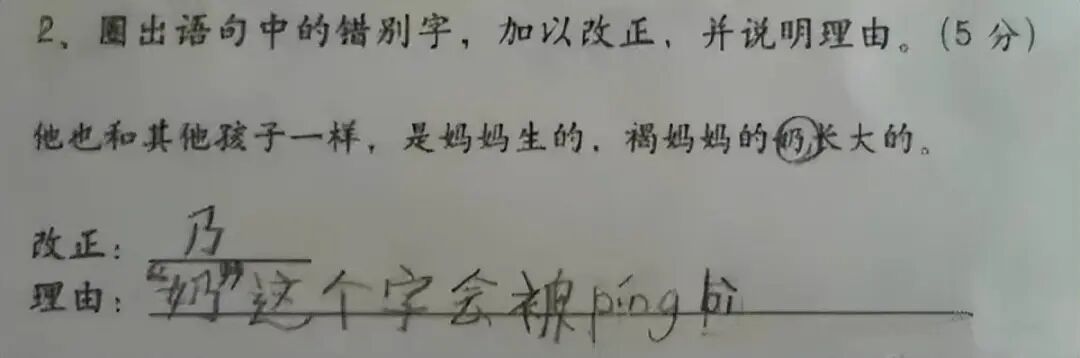 2、圈出语句中的错别字，加以改正，并说明理由。(5 分)
他也和其他孩子一样，是妈妈生的，褐妈妈的奶长大的。
改正：乃
理由："奶"这个字会被píng bì